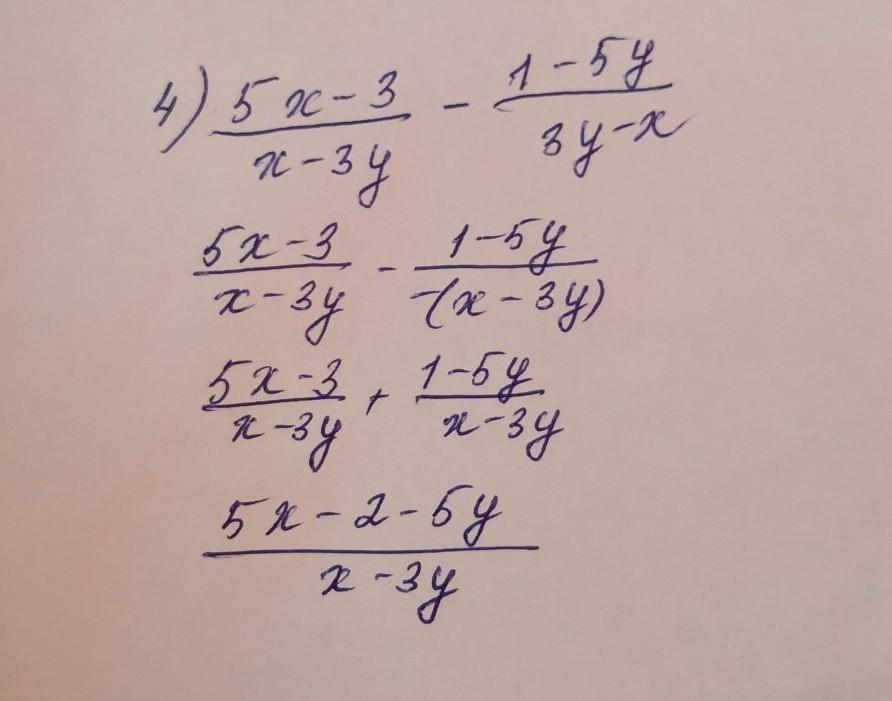 4) \frac{5x-3}{x-3y} - \frac{1-5y}{3y-x}
\frac{5x-3}{x-3y} - \frac{1-5y}{-(x-3y)}
\frac{5x-3}{x-3y} + \frac{1-5y}{x-3y}
\frac{5x-2-5y}{x-3y}